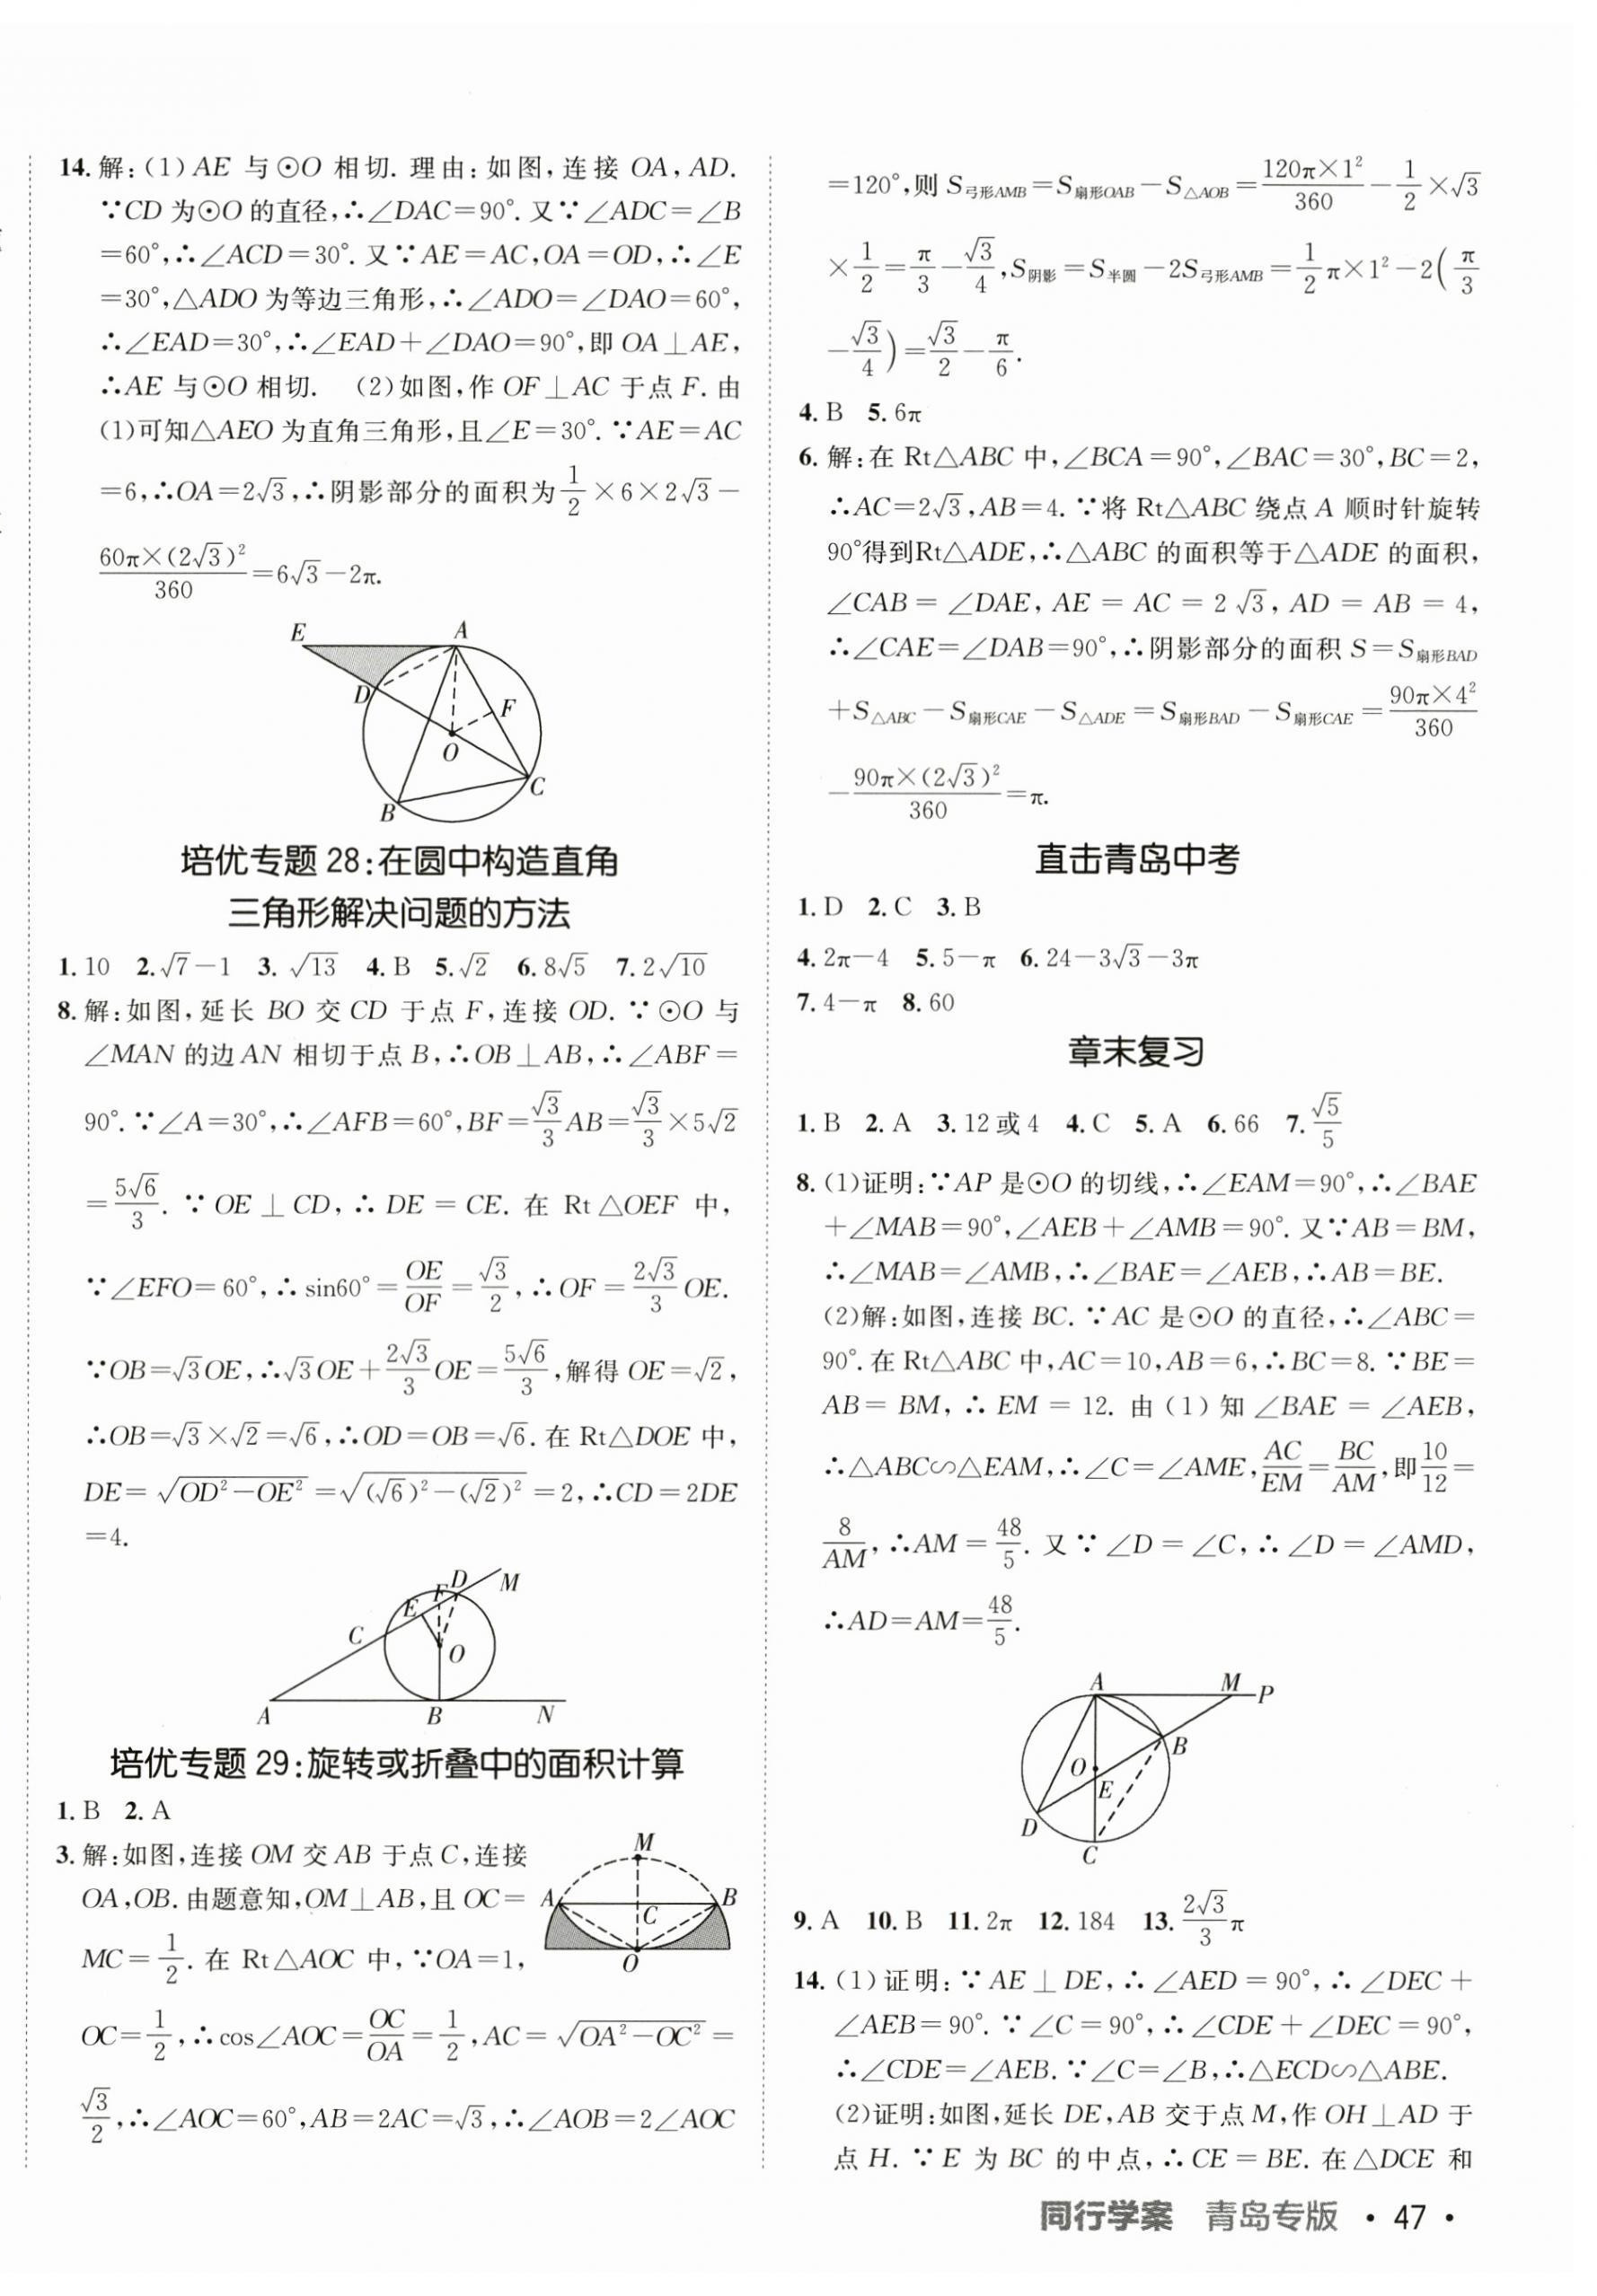 14. 解:(1)AE 与⊙O 相切. 理由:如图,连接 OA,AD.
∵CD 为⊙O 的直径,∴∠DAC=90°. 又∵∠ADC=∠B
=60°,∴∠ACD=30°. 又∵AE=AC,OA=OD,∴∠E
=30°,△ADO 为等边三角形,∴∠ADO=∠DAO=60°,
∴∠EAD=30°,∴∠EAD+∠DAO=90°,即 OA⊥AE,
∴AE 与⊙O 相切. (2)如图,作 OF⊥AC 于点 F. 由
(1)可知△AEO 为直角三角形,且∠E=30°. ∵AE=AC
=6,∴OA=2√3,∴阴影部分的面积为1/2×6×2√3-
60π×(2√3)²/360=6√3-2π.
E A
D F
O
C
B
培优专题 28:在圆中构造直角
三角形解决问题的方法
1. 10 2. √7-1 3. √13 4. B 5. √2 6. 8√5 7. 2√10
8. 解:如图,延长 BO 交 CD 于点 F,连接 OD. ∵⊙O 与
∠MAN 的边 AN 相切于点 B,∴OB⊥AB,∴∠ABF=
90°. ∵∠A=30°,∴∠AFB=60°,BF=√3/3 AB=√3/3×5√2
=5√6/3. ∵OE⊥CD,∴DE=CE. 在 Rt△OEF 中,
∵∠EFO=60°,∴sin60°=OE/OF=√3/2,∴OF=2√3/3 OE.
∵OB=√3OE,∴√3OE+2√3/3 OE=5√6/3,解得 OE=√2,
∴OB=√3×√2=√6,∴OD=OB=√6. 在 Rt△DOE 中,
DE=√(OD²-OE²)=√((√6)²-(√2)²)=2,∴CD=2DE
=4.
F D M
E
C O
A B N
培优专题 29:旋转或折叠中的面积计算
1. B 2. A
3. 解:如图,连接 OM 交 AB 于点 C,连接
OA,OB. 由题意知,OM⊥AB,且 OC=
MC=1/2. 在 Rt△AOC 中,∵OA=1,
M
A B
C
O
OC=1/2,∴cos∠AOC=OC/OA=1/2,AC=√(OA²-OC²)=
√3/2,∴∠AOC=60°,AB=2AC=√3,∴∠AOB=2∠AOC
=120°,则 S弓形AMB=S扇形OAB-S△AOB=120π×1²/360-1/2×√3
×1/2=π/3-√3/4,S阴影=S半圆-2S弓形AMB=1/2π×1²-2(π/3
-√3/4)=√3/2-π/6.
4. B 5. 6π
6. 解:在 Rt△ABC 中,∠BCA=90°,∠BAC=30°,BC=2,
∴AC=2√3,AB=4. ∵将 Rt△ABC 绕点 A 顺时针旋转
90°得到Rt△ADE,∴△ABC 的面积等于△ADE 的面积,
∠CAB=∠DAE,AE=AC=2√3,AD=AB=4,
∴∠CAE=∠DAB=90°,∴阴影部分的面积 S=S扇形BAD
+S△ABC-S扇形CAE-S△ADE=S扇形BAD-S扇形CAE=90π×4²/360
-90π×(2√3)²/360=π.
直击青岛中考
1. D 2. C 3. B
4. 2π-4 5. 5-π 6. 24-3√3-3π
7. 4-π 8. 60
章末复习
1. B 2. A 3. 12或4 4. C 5. A 6. 66 7. √5/5
8. (1)证明:∵AP 是⊙O 的切线,∴∠EAM=90°,∴∠BAE
+∠MAB=90°,∠AEB+∠AMB=90°. 又∵AB=BM,
∴∠MAB=∠AMB,∴∠BAE=∠AEB,∴AB=BE.
(2)解:如图,连接 BC. ∵AC 是⊙O 的直径,∴∠ABC=
90°. 在 Rt△ABC 中,AC=10,AB=6,∴BC=8. ∵BE=
AB=BM,∴EM=12. 由(1)知∠BAE=∠AEB,
∴△ABC∽△EAM,∴∠C=∠AME,AC/EM=BC/AM,即10/12=
8/AM,∴AM=48/5. 又∵∠D=∠C,∴∠D=∠AMD,
∴AD=AM=48/5.
A M P
B
O
E
D
C
9. A 10. B 11. 2π 12. 184 13. 2√3/3π
14. (1)证明:∵AE⊥DE,∴∠AED=90°,∴∠DEC+
∠AEB=90°. ∵∠C=90°,∴∠CDE+∠DEC=90°,
∴∠CDE=∠AEB. ∵∠C=∠B,∴△ECD∽△ABE.
(2)证明:如图,延长 DE,AB 交于点 M,作 OH⊥AD 于
点 H. ∵E 为 BC 的中点,∴CE=BE. 在△DCE 和
同行学案 青岛专版 · 47 ·